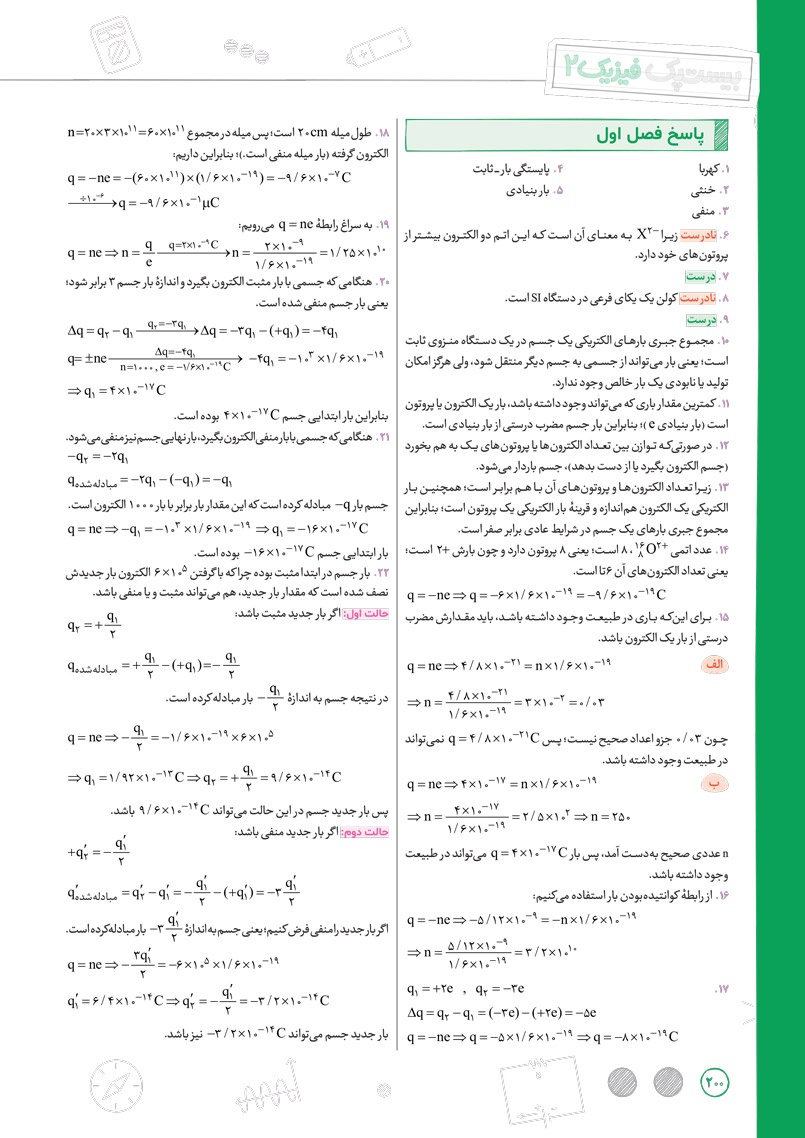 بیست‌پک فیزیک ۲
پاسخ فصل اول
۱. کهربا
۲. خنثی
۳. منفی
۴. پایستگی بار ـ ثابت
۵. بار بنیادی
۶. نادرست زیرا X²⁻ به معنای آن است که این اتم دو الکترون بیشتر از
پروتون‌های خود دارد.
۷. درست
۸. نادرست کولن یک یکای فرعی در دستگاه SI است.
۹. درست
۱۰. مجموع جبری بارهای الکتریکی یک جسم در یک دستگاه منزوی ثابت
است؛ یعنی بار می‌تواند از جسمی به جسم دیگر منتقل شود، ولی هرگز امکان
تولید یا نابودی یک بار خالص وجود ندارد.
۱۱. کمترین مقدار باری که می‌تواند وجود داشته باشد، بار یک الکترون یا پروتون
است (بار بنیادی e)؛ بنابراین بار جسم مضرب درستی از بار بنیادی است.
۱۲. در صورتی‌که توازن بین تعداد الکترون‌ها یا پروتون‌های یک به هم بخورد
(جسم الکترون بگیرد یا از دست بدهد)، جسم باردار می‌شود.
۱۳. زیرا تعداد الکترون‌ها و پروتون‌های آن با هم برابر است؛ همچنین بار
الکتریکی یک الکترون هم‌اندازه و قرینهٔ بار الکتریکی یک پروتون است؛ بنابراین
مجموع جبری بارهای یک جسم در شرایط عادی برابر صفر است.
۱۴. عدد اتمی ¹⁶₈O²⁺، ۸ است؛ یعنی ۸ پروتون دارد و چون بارش ۲+ است؛
یعنی تعداد الکترون‌های آن ۶ تا است.
q = −ne ⇒ q = −۶×۱/۶×۱۰⁻¹⁹ = −۹/۶×۱۰⁻¹⁹ C
۱۵. برای این‌که باری در طبیعت وجود داشته باشد، باید مقدارش مضرب
درستی از بار یک الکترون باشد.
الف q = ne ⇒ ۴/۸×۱۰⁻²¹ = n×۱/۶×۱۰⁻¹⁹
⇒ n = (۴/۸×۱۰⁻²¹)/(۱/۶×۱۰⁻¹⁹) = ۳×۱۰⁻² = ۰/۰۳
چون ۰/۰۳ جزو اعداد صحیح نیست؛ پس q = ۴/۸×۱۰⁻²¹ C نمی‌تواند
در طبیعت وجود داشته باشد.
ب q = ne ⇒ ۴×۱۰⁻¹⁷ = n×۱/۶×۱۰⁻¹⁹
⇒ n = (۴×۱۰⁻¹⁷)/(۱/۶×۱۰⁻¹⁹) = ۲/۵×۱۰² ⇒ n = ۲۵۰
n عددی صحیح به‌دست آمد، پس بار q = ۴×۱۰⁻¹⁷ C می‌تواند در طبیعت
وجود داشته باشد.
۱۶. از رابطهٔ کوانتیده‌بودن بار استفاده می‌کنیم:
q = −ne ⇒ −۵/۱۲×۱۰⁻⁹ = −n×۱/۶×۱۰⁻¹⁹
⇒ n = (۵/۱۲×۱۰⁻⁹)/(۱/۶×۱۰⁻¹⁹) = ۳/۲×۱۰¹⁰
۱۷. q₁ = +۲e , q₂ = −۳e
Δq = q₂ − q₁ = (−۳e) − (+۲e) = −۵e
q = −ne ⇒ q = −۵×۱/۶×۱۰⁻¹⁹ ⇒ q = −۸×۱۰⁻¹⁹ C
۱۸. طول میله ۲۰cm است؛ پس میله در مجموع n=۲۰×۳×۱۰¹¹=۶۰×۱۰¹¹
الکترون گرفته (بار میله منفی است.)؛ بنابراین داریم:
q = −ne = −(۶۰×۱۰¹¹)×(۱/۶×۱۰⁻¹⁹) = −۹/۶×۱۰⁻⁷ C
÷۱۰⁻⁶ → q = −۹/۶×۱۰⁻¹ μC
۱۹. به سراغ رابطهٔ q = ne می‌رویم:
q = ne ⇒ n = q/e q=۲×۱۰⁻⁹C → n = (۲×۱۰⁻⁹)/(۱/۶×۱۰⁻¹⁹) = ۱/۲۵×۱۰¹⁰
۲۰. هنگامی‌که جسمی با بار مثبت الکترون بگیرد و اندازهٔ بار جسم ۳ برابر شود؛
یعنی بار جسم منفی شده است.
Δq = q₂ − q₁ q₂=−۳q₁ → Δq = −۳q₁ − (+q₁) = −۴q₁
q = ±ne Δq=−۴q₁ n=۱۰۰۰, e=−۱/۶×۱۰⁻¹⁹C → −۴q₁ = −۱۰³×۱/۶×۱۰⁻¹⁹
⇒ q₁ = ۴×۱۰⁻¹⁷ C
بنابراین بار ابتدایی جسم ۴×۱۰⁻¹⁷ C بوده است.
۲۱. هنگامی‌که جسمی با بار منفی الکترون بگیرد، بار نهایی جسم نیز منفی می‌شود.
−q₂ = −۲q₁
q مبادله‌شده = −۲q₁ − (−q₁) = −q₁
جسم بار −q مبادله کرده است که این مقدار بار برابر با بار ۱۰۰۰ الکترون است.
q = ne ⇒ −q₁ = −۱۰³×۱/۶×۱۰⁻¹⁹ ⇒ q₁ = −۱۶×۱۰⁻¹⁷ C
بار ابتدایی جسم −۱۶×۱۰⁻¹⁷ C بوده است.
۲۲. بار جسم در ابتدا مثبت بوده چراکه با گرفتن ۶×۱۰⁵ الکترون بار جدیدش
نصف شده است که مقدار بار جدید، هم می‌تواند مثبت و یا منفی باشد.
حالت اول: اگر بار جدید مثبت باشد:
q₂ = +q₁/۲
q مبادله‌شده = +q₁/۲ − (+q₁) = −q₁/۲
در نتیجه جسم به اندازهٔ −q₁/۲ بار مبادله کرده است.
q = ne ⇒ −q₁/۲ = −۱/۶×۱۰⁻¹⁹×۶×۱۰⁵
⇒ q₁ = ۱/۹۲×۱۰⁻¹³ C ⇒ q₂ = +q₁/۲ = ۹/۶×۱۰⁻¹⁴ C
پس بار جدید جسم در این حالت می‌تواند ۹/۶×۱۰⁻¹⁴ C باشد.
حالت دوم: اگر بار جدید منفی باشد:
+q′₂ = −q′₁/۲
q′ مبادله‌شده = q′₂ − q′₁ = −q′₁/۲ − (+q′₁) = −۳ q′₁/۲
اگر بار جدید را منفی فرض کنیم؛ یعنی جسم به اندازهٔ −۳ q′₁/۲ بار مبادله کرده است.
q = ne ⇒ −۳q′₁/۲ = −۶×۱۰⁵×۱/۶×۱۰⁻¹⁹
q′₁ = ۶/۴×۱۰⁻¹⁴ C ⇒ q′₂ = −q′₁/۲ = −۳/۲×۱۰⁻¹⁴ C
بار جدید جسم می‌تواند −۳/۲×۱۰⁻¹⁴ C نیز باشد.
۲۰۰